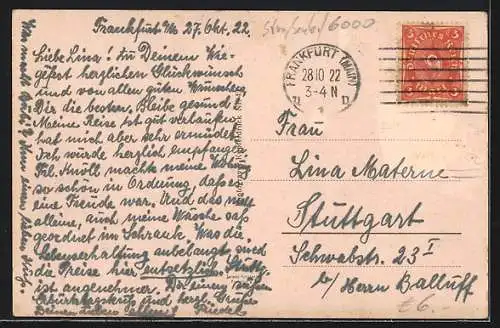 Frankfurt M. 27. Okt. 22.
Liebe Lina! Zu Deinem Wie-
genfest herzlichen Glückwunsch
und von allen guten Wünschen
Dir die besten, bleibe gesund.
Meine Reise ist gut verlaufen
hat mich aber sehr ermüdet
Ich wurde herzlich empfangen
Frl. Knöll machte meine
so schön in Ordnung, daß es
eine Freude war. Und das
alleine, auch meine Wäsche saß
geordnet im Schrank. Was die
Lebenserhaltung anbelangt sind
die Preise hier entsetzlich, Stuttg.
ist angenehmer. Dir einen süßen
Geburtstagskuß und herzl. Grüße
Deinen Lieben allen! Friedel
Was macht
einen lieben Kuß.
6000
FRANKFURT (MAIN)
28.10.22
3-4 N
Frau
Lina Materne
Stuttgart
Schwabstr. 23 I
b/ Herrn Balluff
£6.-